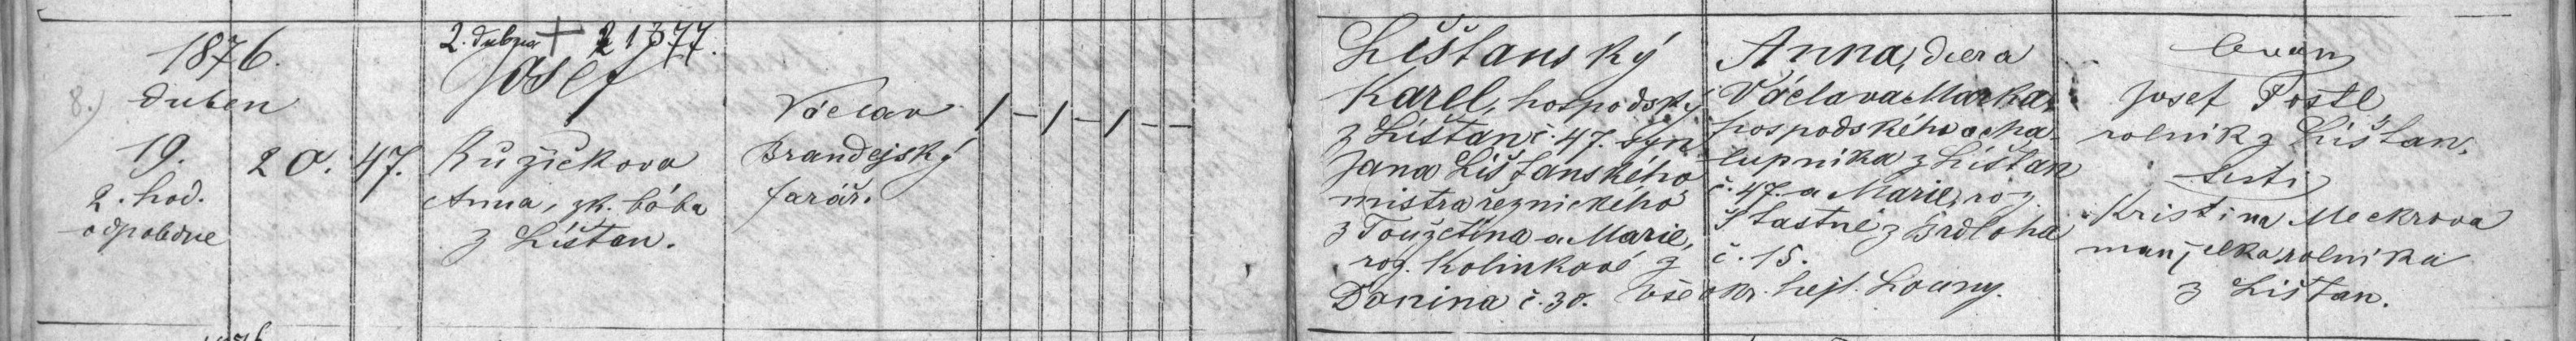 1876.
duben
8.)
19.
2. hod.
odpoledne
20.
47.
2. dubna + 2 1877.
Josef
Růžičkova
Anna, zk. bába
z Líštan.
Václav
Brandejský
farář.
/ - / - / - -
Lištanský
Karel, hospodský
z Líštan č. 47. syn
Jana Lištanského
mistra řeznického
z Toužetína a Marie,
roz. Kolinkové z
Donína č. 30.
Anna, dcera
Václava Marka,
hospodského a cha-
lupníka z Líštan
č. 47. a Marie, roz.
Šťastné z Brdloha
č. 15.
vše okr. hejt. Louny.
Josef Postl
rolník z Líštan.
Kristina
manželka rolníka
z Lištan.